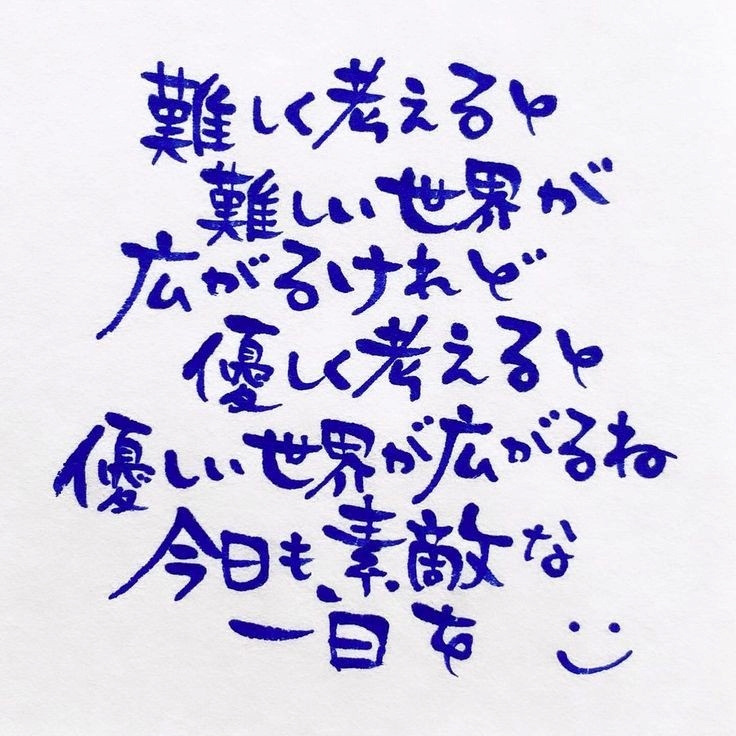 難しく考えると
難しい世界が
広がるけれど
優しく考えると
優しい世界が広がるね
今日も、素敵な
一日を